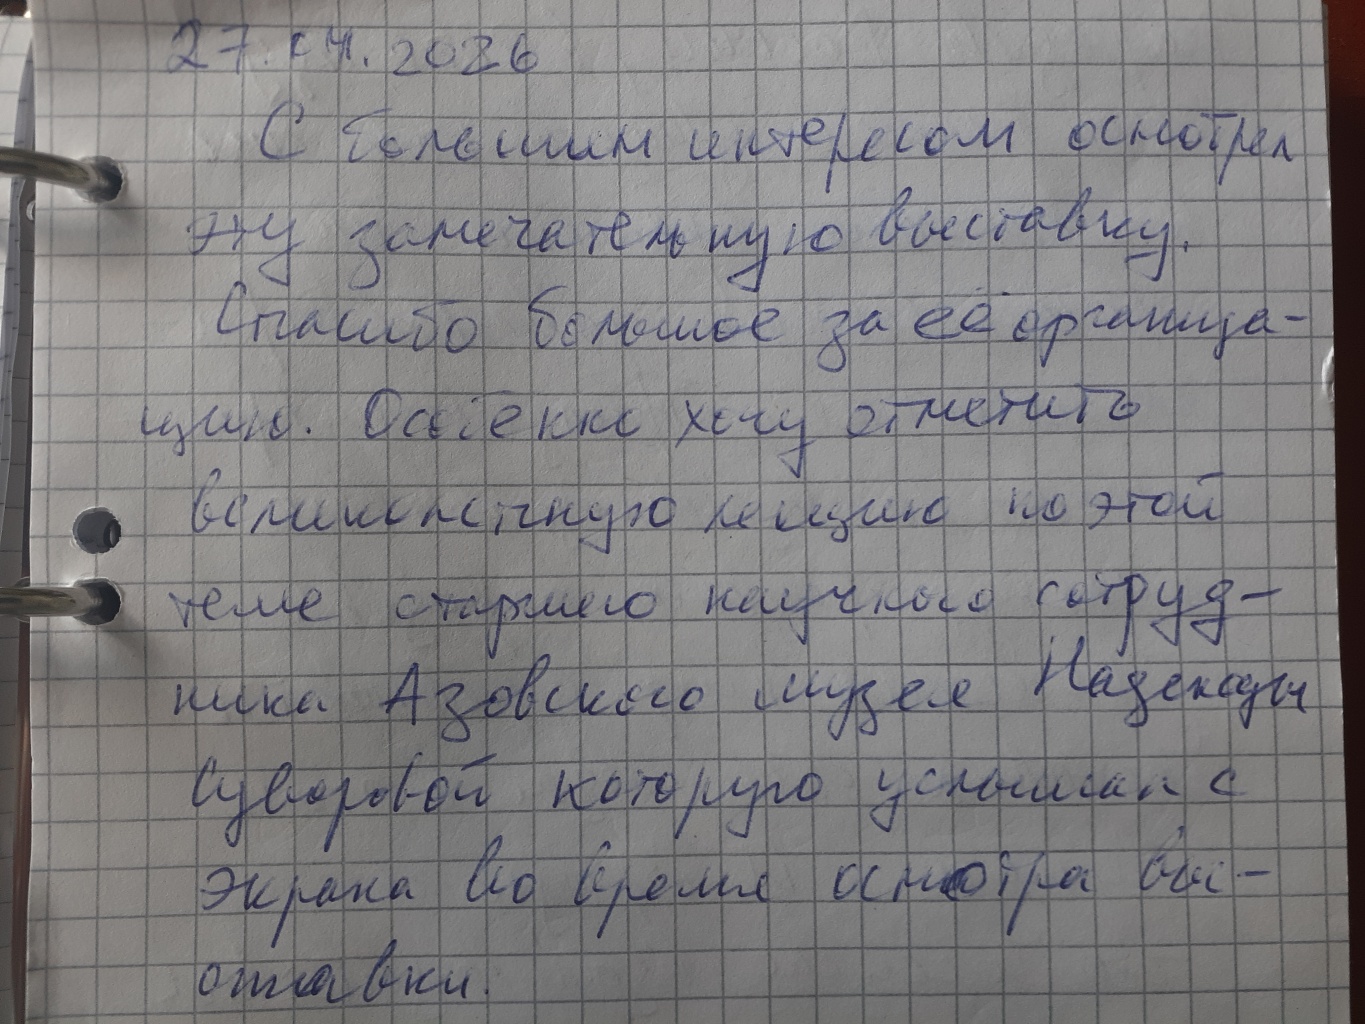 27.04.2026
С большим интересом осмотрел
эту замечательную выставку.
Спасибо большое за её организа-
цию. Особенно хочу отметить
великолепную лекцию по этой
теме старшего научного сотруд-
ника Азовского музея Надежды
Суворовой которую услышал с
экрана во время осмотра вы-
ставки.